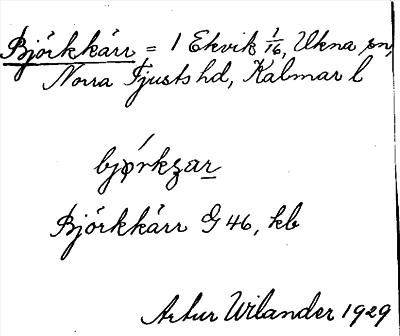 Björkkärr = 1 Ekvik 1/16, Ukna sn,
Norra Tjusts hd, Kalmar l
bjǿrkʒar
Björkkärr G 46, kb
Artur Wilander 1929